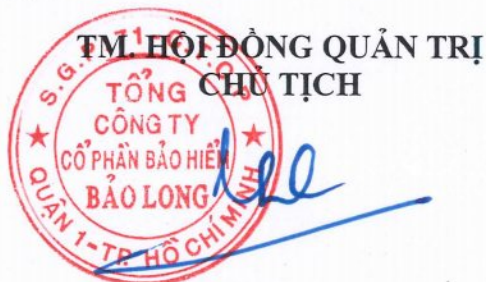 TM. HỘI ĐỒNG QUẢN TRỊ
CHỦ TỊCH
TỔNG
CÔNG TY
CỔ PHẦN BẢO HIỂM
BẢO LONG
QUẬN 1 - TP. HỒ CHÍ MINH